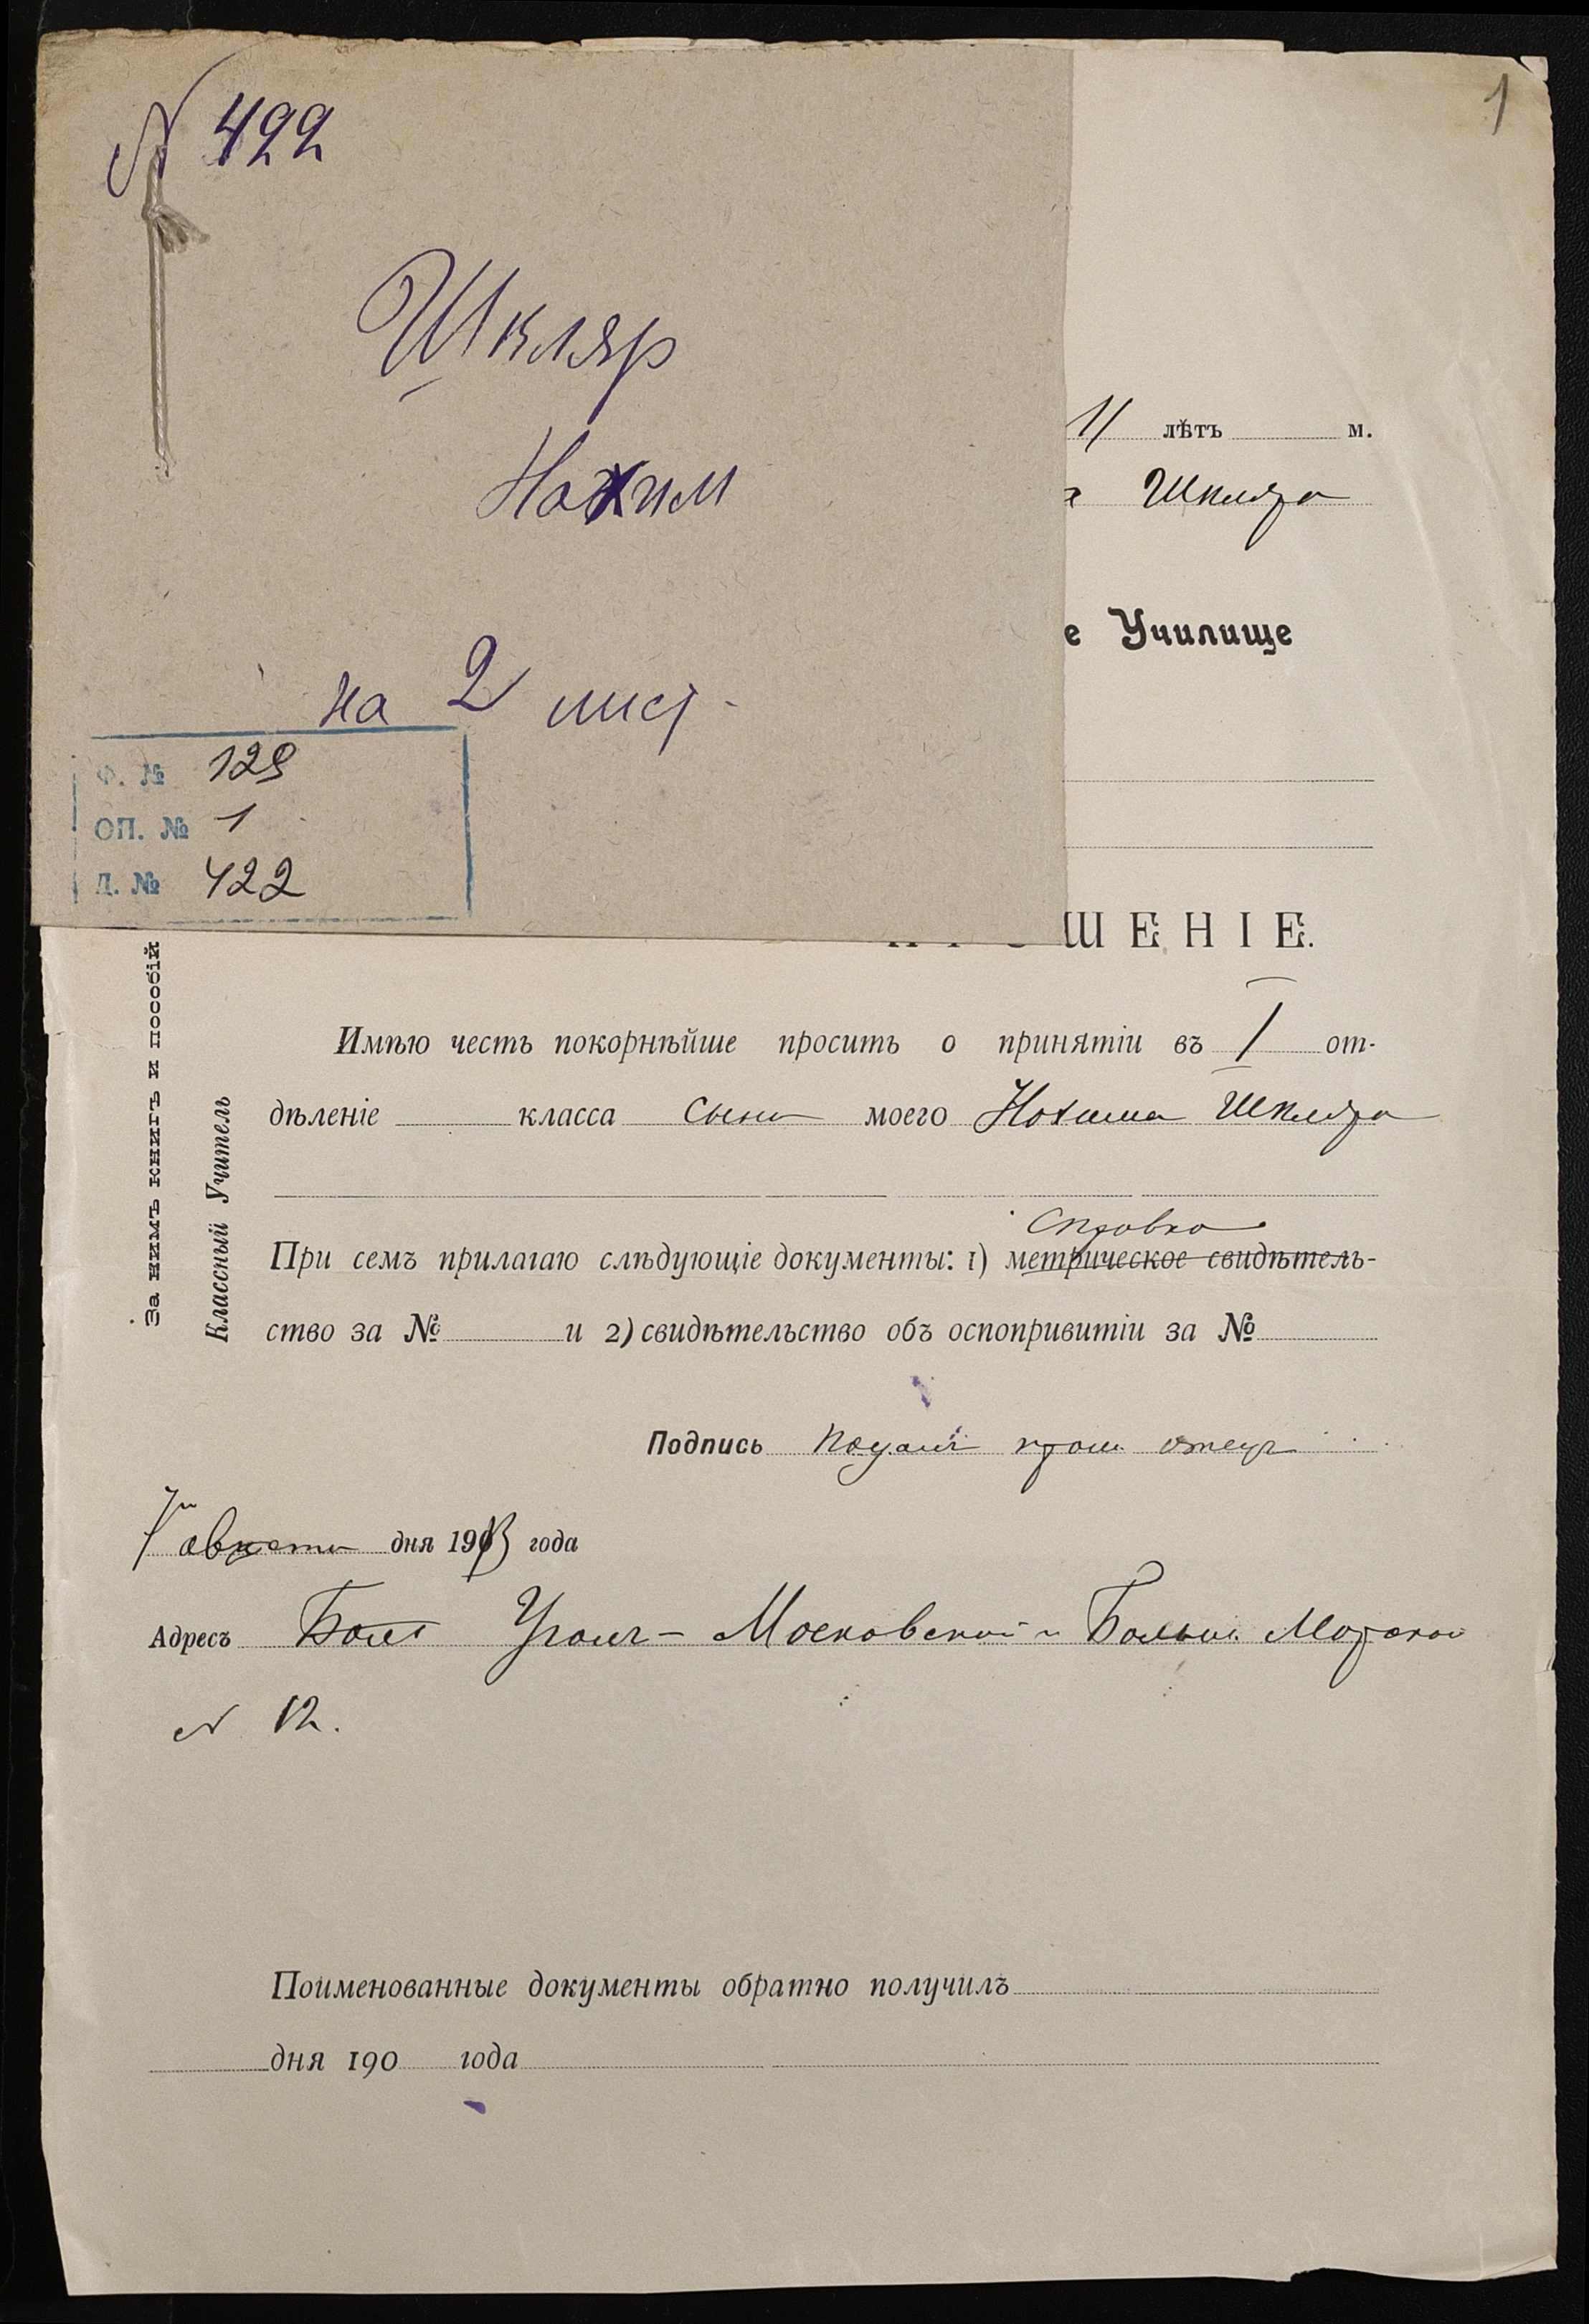 1
№ 422
Шкляр
Нохим
на 2 лист.
Ф. № 129
ОП. № 1
Д. № 422
11 лѣтъ м.
а Шкляра
е Училище
ШЕНІЕ.
За нимъ книгъ и пособій
Классный Учитель
Имѣю честь покорнѣйше просить о принятіи въ I от-
дѣленіе класса сына моего Нохима Шкляра
Справка
При семъ прилагаю слѣдующіе документы: 1) метрическое свидѣтель-
ство за № и 2) свидѣтельство объ оспопривитіи за №
Подпись отецъ
7 августа дня 1913 года
Адресъ Уголъ - Московской и Больш. Морской
№ 12.
Поименованные документы обратно получилъ
дня 190 года